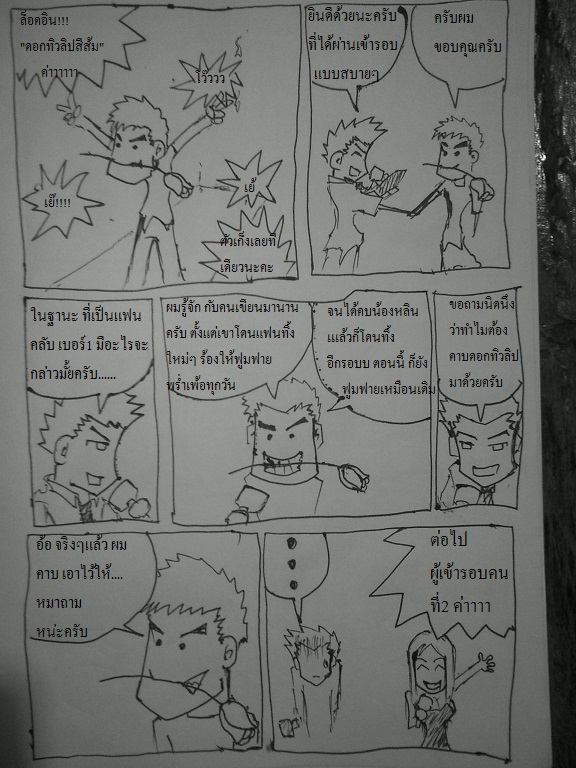 ล็อคอิน!!!
"ดอกทิวลิปสีส้ม"
ค่าาาาาา
โว๊วววว
เย๊!!!!
เย้
ตัวเก็งเลยที
เดียวนะคะ
ยินดีด้วยนะครับ
ที่ได้ผ่านเข้ารอบ
แบบสบายๆ
ครับผม
ขอบคุณครับ
ในฐานะ ที่เป็นแฟน
คลับ เบอร์1 มีอะไรจะ
กล่าวมั้ยครับ......
ผมรู้จัก กับคนเขียนมานาน
ครับ ตั้งแต่เขาโดนแฟนทิ้ง
ใหม่ๆ ร้องให้ฟูมฟาย
พร่ำเพ้อทุกวัน
จนได้คบน้องหลิน
แแล้วก็โดนทิ้ง
อีกรอบบ ตอนนี้ ก็ยัง
ฟูมฟายเหมือนเดิม
ขอถามนิดนึ่ง
ว่าทำไมต้อง
คาบดอกทิวลิป
มาด้วยครับ
อ้อ จริงๆแล้ว ผม
คาบ เอาไว้ให้....
หมาถาม
หน่ะครับ
ต่อไป
ผู้เข้ารอบคน
ที่2 ค่าาาา